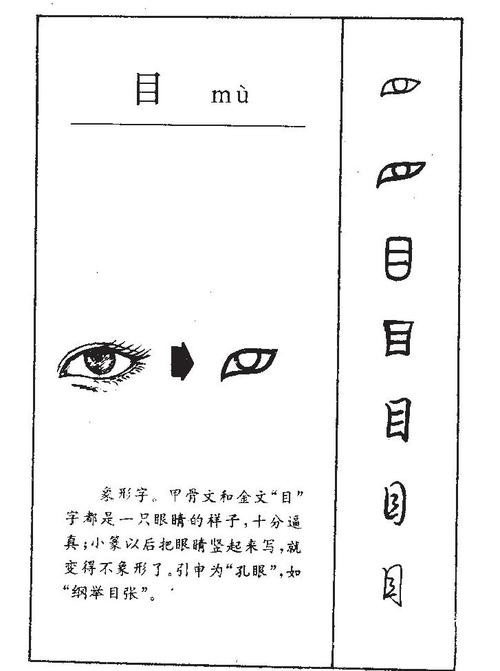 目 mù
象形字。甲骨文和金文“目”
字都是一只眼睛的样子,十分逼
真;小篆以后把眼睛竖起来写,就
变得不象形了。引申为“孔眼”,如
“纲举目张”。
目
目
目
目
目
目
目